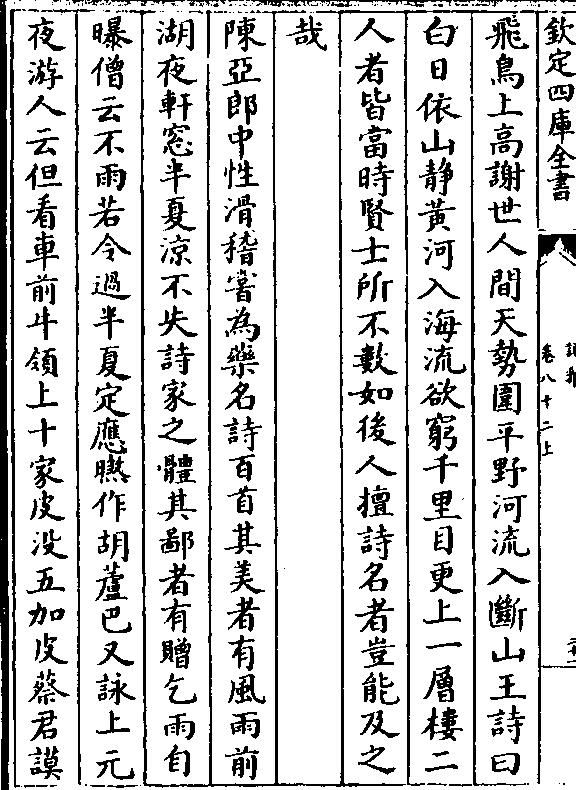 欽定四庫全書
卷八十二上
飛鳥上高謝世人間天勢圍平野河流入斷山王詩曰
白日依山静黃河入海流欲窮千里目更上一層樓二
人者皆當時賢士所不數如後人擅詩名者豈能及之
哉
陳亞郎中性滑稽嘗為藥名詩百首其美者有風雨前
湖夜軒窓半夏涼不失詩家之體其鄙者有贈乞雨自
曝僧云不雨若令過半夏定應曬作胡蘆巴又詠上元
夜游人云但看車前牛領上十家皮没五加皮蔡君謨